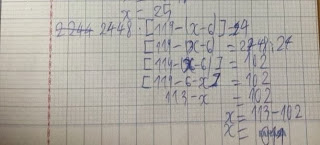 x = 25
2244 2448 : [119-(x-6)]=24
[119-(x-6) = 2448:24
[119-(x-6)] = 102
[119-6-x] = 102
113-x = 102
x = 113-102
x =